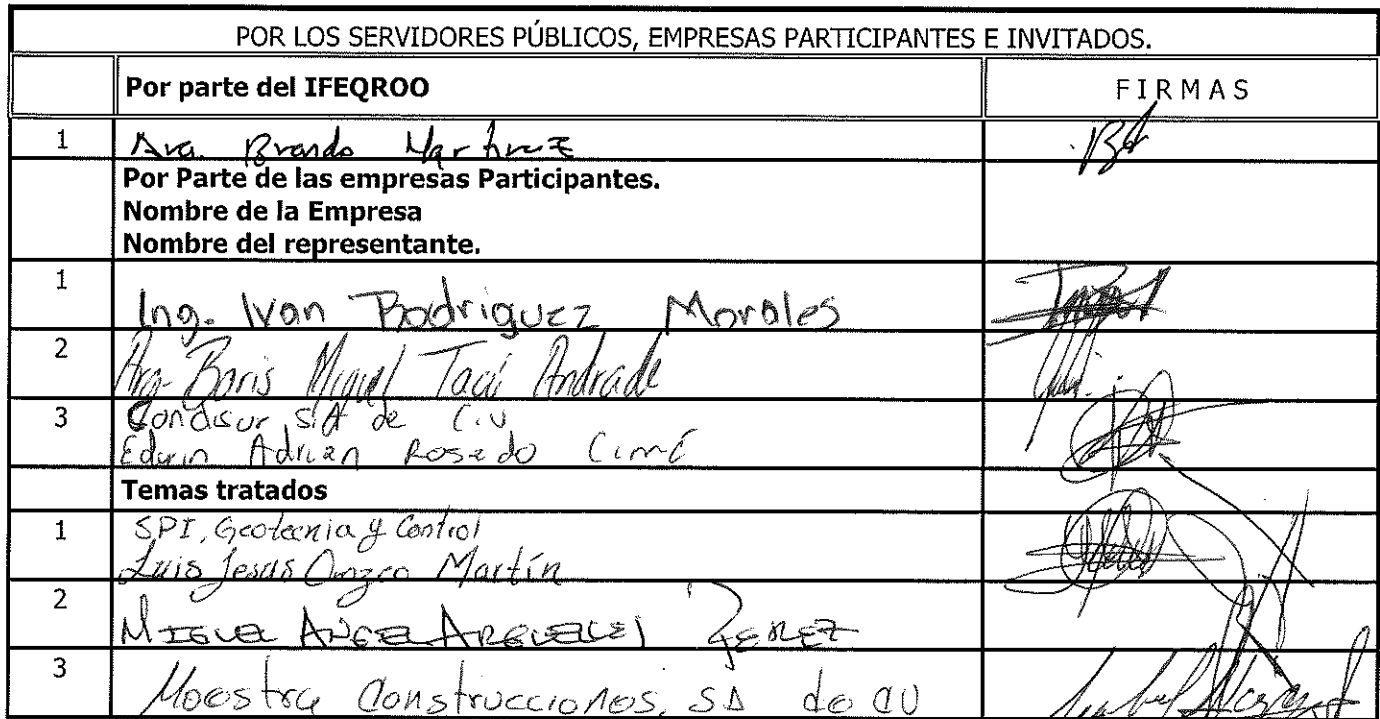 POR LOS SERVIDORES PÚBLICOS, EMPRESAS PARTICIPANTES E INVITADOS.
Por parte del IFEQROO FIRMAS
1 Arq. Brando Martinez
Por Parte de las empresas Participantes.
Nombre de la Empresa
Nombre del representante.
1 Ing. Ivan Rodriguez Morales
2 Arq. Boris Miguel Andrade
3 Condisur S.A de C.V
Edwin Adrian Rosado Cimé
Temas tratados
1 SPI, Geotecnia y Control
Luis Jesús Orozco Martín
2 MIGUEL ANGEL PEREZ
3 Moestra Construcciones, SA de CV